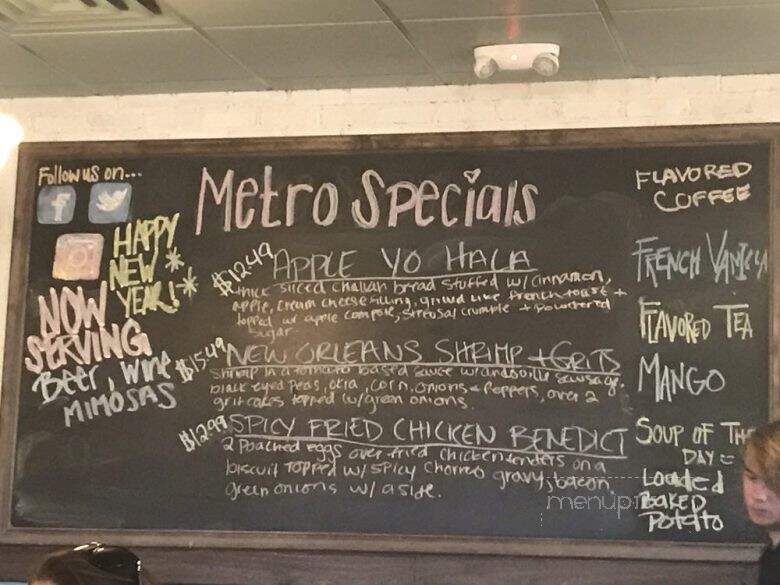 Follow us on...
f
HAPPY
NEW
YEAR!
NOW
SERVING
Beer, Wine
MIMOSAS
Metro Specials
$12.49 APPLE YO HALA
thick sliced challah bread stuffed w/ cinnamon,
apple, cream cheese filling, grilled like french toast +
topped w/ apple compote, streusal crumble + powdered
sugar
$15.49 NEW ORLEANS SHRIMP + GRITS
shrimp in a tomato based sauce w/ andouille sausage,
black eyed peas, okra, corn, onions + peppers, over 2
grit cakes topped w/ green onions.
$12.99 SPICY FRIED CHICKEN BENEDICT
2 poached eggs over fried chicken tenders on a
biscuit topped w/ spicy chorizo gravy, bacon,
green onions w/ a side.
FLAVORED
COFFEE
FRENCH VANILLA
FLAVORED TEA
MANGO
SOUP OF THE
DAY
Loaded
BAKED
Potato